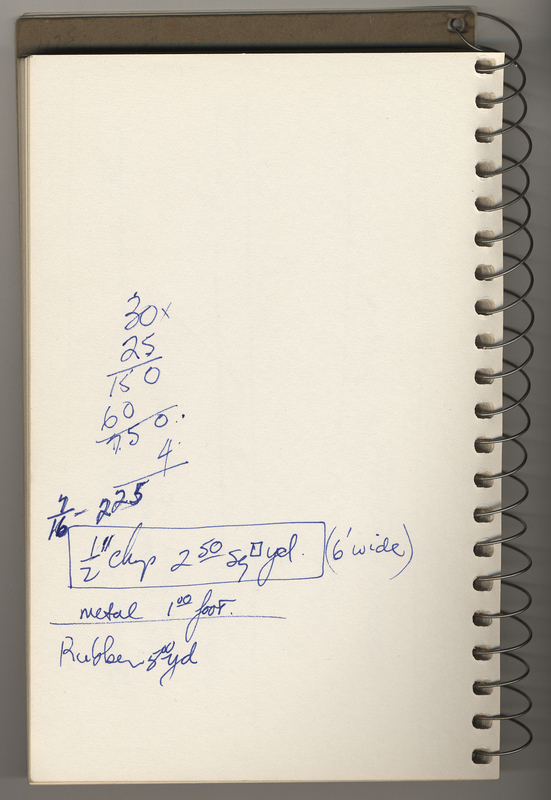 30x
25
150
60
750.
4
7/16 - 225
1/2" chip 2 50 Sq □ yd. (6' wide)
metal 1 00 foot.
Rubber 5 00 yd